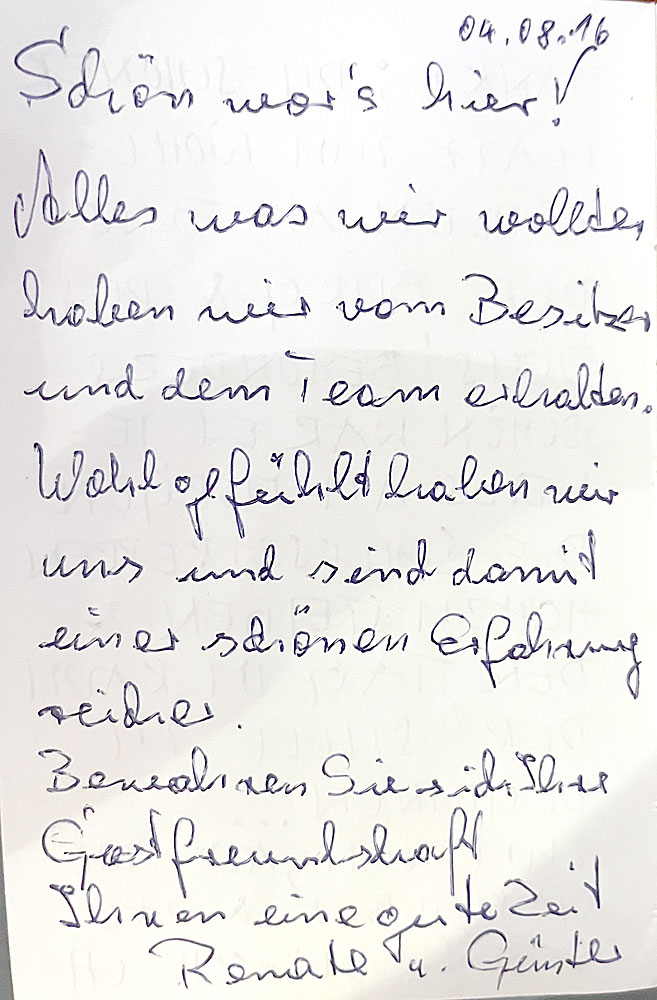 04.08.16
Schön war's hier!
Alles was wir wollten
haben wir vom Besitzer
und dem Team erhalten.
Wohl gefühlt haben wir
uns und sind damit
einer schönen Erfahrung
reicher.
Bewahren Sie sich Ihre
Gastfreundschaft
Ihnen eine gute Zeit
Renate u. Günter